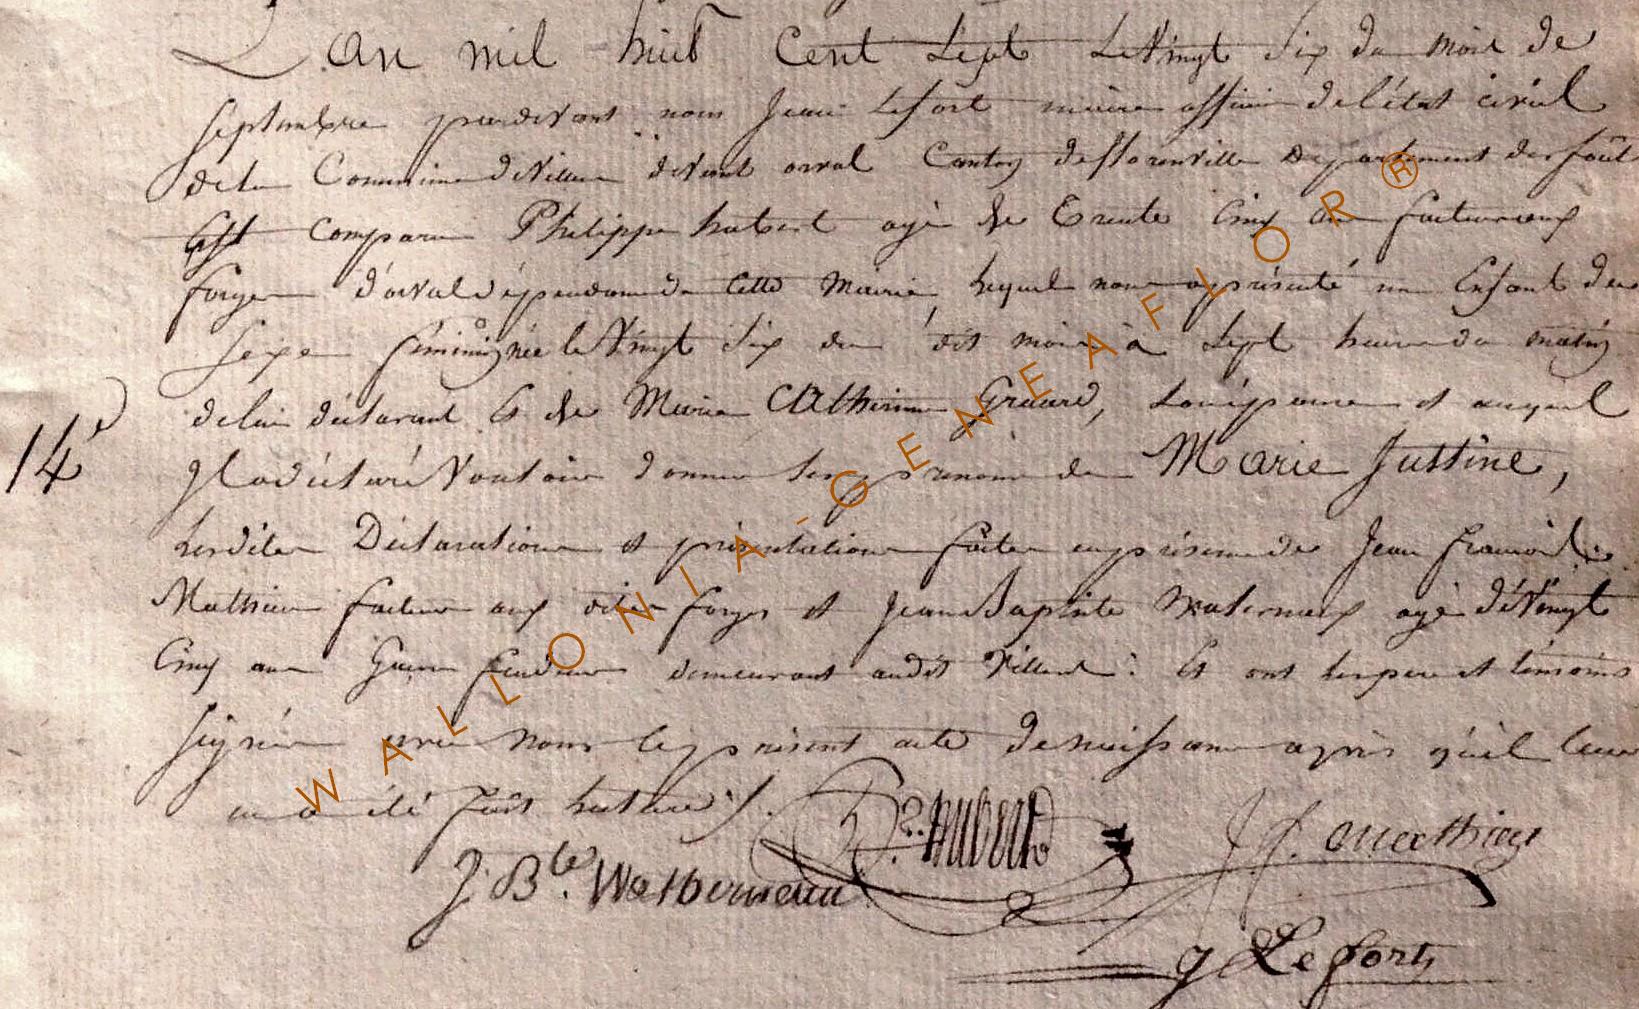 L'an mil huit Cent Sept Le Vingt Six du mois de
Septembre pardevant nous Jean Lefort maire officier de l'état civil
de la Commune de Villers devant orval Canton de florenville Departement des forêts
Est comparu Philippe hubert agé de Trente Cinq ans facteur aux
forges d'orval dépendance de Cette Mairie, lequel nous a présenté un Enfant de
Sexe féminin née le Vingt Six du dit mois à Sept heures du matin
de lui déclarant Et de Marie Catherine Gerard, Son épouse et auquel
14e
Il a déclaré Vouloir donner les prénoms de Marie Justine,
Lesdites Déclaration et présentation faites en présence de Jean françois
Mathieu facteur aux dites forges et Jean Baptiste Watermaux agé de Vingt
Cinq ans demeurant audit Villers : Et ont les pere et témoins
Signés avec nous le présent acte de naissance après qu'il leur
en a été fait lecture ./.
Ph. hubert
J. f. Mathieu
J. Bte. Watermeaux
J Lefort
WALLONIA-GENEAFLOR ®